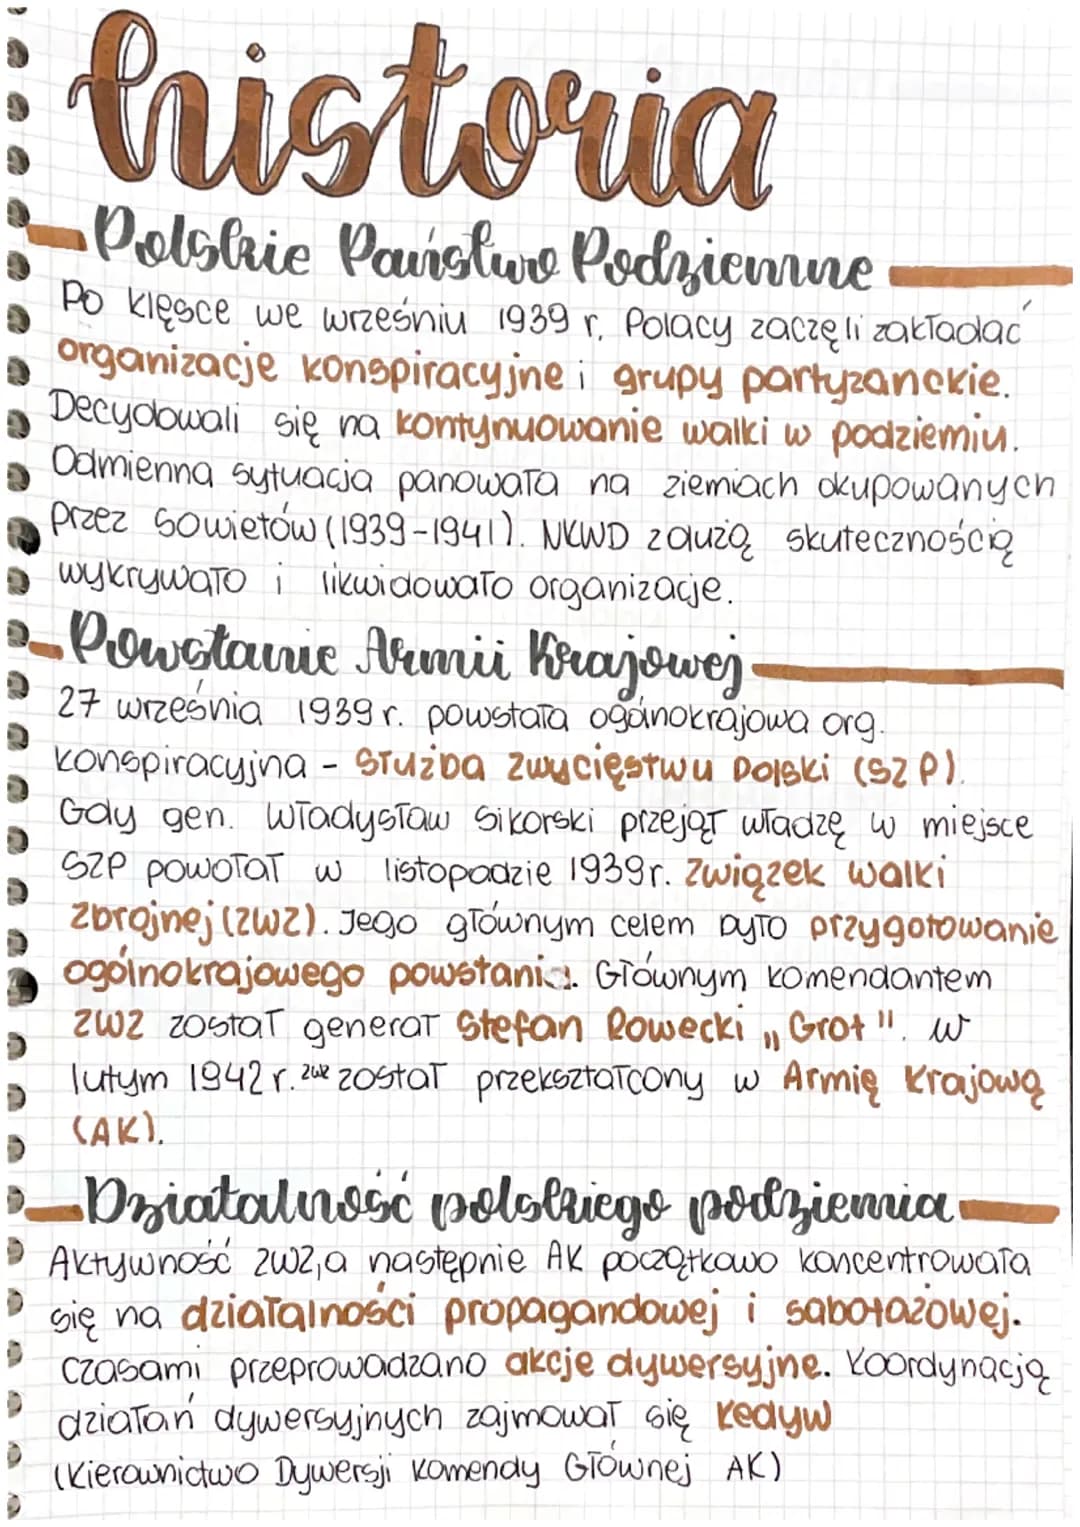 historia
Polskie Państwo Podziemne
Po klęsce we wrześniu 1939 r. Polacy zaczęli zakładać
organizacje konspiracyjne i grupy partyzanckie.
Decydowali się na kontynuowanie walki w podziemiu.
Odmienną sytuacja panowała na ziemiach okupowanych
przez Sowietów (1939-1941). NKWD z dużą skutecznością
wykrywało i likwidowało organizacje.
Powstanie Armii Krajowej
27 września 1939 r. powstała ogólnokrajowa org.
konspiracyjna - Służba Zwycięstwu Polski (SZP).
Gdy gen. Władysław Sikorski przejął władzę w miejsce
SZP powołał w listopadzie 1939r. Związek walki
zbrojnej (ZWZ). Jego głównym celem było przygotowanie
ogólnokrajowego powstania. Głównym komendantem
ZWZ został generał Stefan Rowecki „Grot". w
lutym 1942 r. ZWZ został przekształcony w Armię Krajową
(AK).
Działalność polskiego podziemia
Aktywność ZWZ, a następnie AK początkowo koncentrowała
się na działalności propagandowej i sabotażowej.
czasami przeprowadzano akcje dywersyjne. Koordynacją
działań dywersyjnych zajmował się Kedyw
(Kierownictwo Dywersji Komendy Głównej AK)